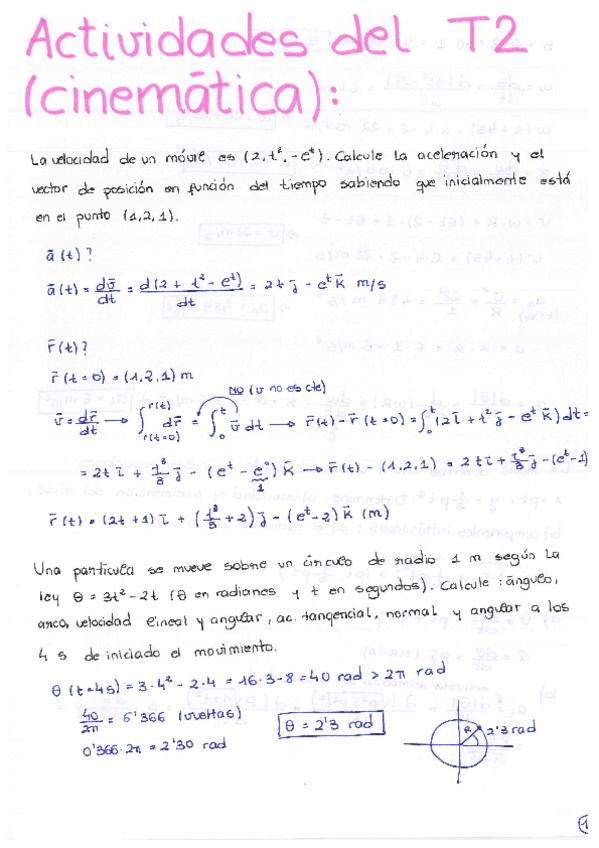 Actividades del T2
(cinemática):
La velocidad de un móvil es (2, t², -eᵗ). Calcule la aceleración y el
vector de posición en función del tiempo sabiendo que inicialmente está
en el punto (1,2,1).
ā(t)?
ā(t) = dv̄/dt = d(2 + t² - eᵗ)/dt = 2t j̄ - eᵗ k̄ m/s
r̄(t)?
r̄(t=0) = (1,2,1) m
NO (v no es cte)
v̄ = dr̄/dt → ∫_{r(t=0)}^{r(t)} dr̄ = ∫₀ᵗ v̄ dt → r̄(t) - r̄(t=0) = ∫₀ᵗ (2ī + t² j̄ - eᵗ k̄) dt =
= 2t ī + t³/3 j̄ - (eᵗ - e⁰) k̄ → r̄(t) - (1,2,1) = 2t ī + t³/3 j̄ - (eᵗ - 1)
1
r̄(t) = (2t + 1) ī + (t³/3 + 2) j̄ - (eᵗ - 2) k̄ (m)
Una partícula se mueve sobre un círculo de radio 1 m según la
ley θ = 3t² - 2t (θ en radianes y t en segundos). Calcule: ángulo,
arco, velocidad lineal y angular, ac. tangencial, normal y angular a los
4 s de iniciado el movimiento.
θ (t=4s) = 3·4² - 2·4 = 16·3 - 8 = 40 rad > 2π rad
40/2π = 6'366 (vueltas)
θ = 2'3 rad
0'366·2π = 2'30 rad
R
2'3 rad
1